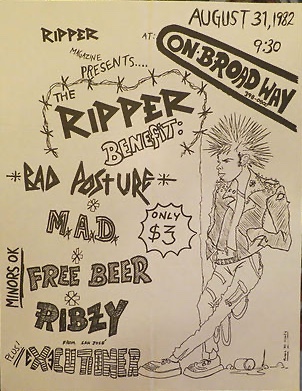 AUGUST 31, 1982
9:30
RIPPER
MAGAZINE
PRESENTS....
AT:
ON BROADWAY
THE
RIPPER
BENEFIT:
BAD POSTURE
M.A.D.
ONLY
$3
MINORS OK
FREE BEER
RIBZY
FROM SAN JOSE
PLUS!